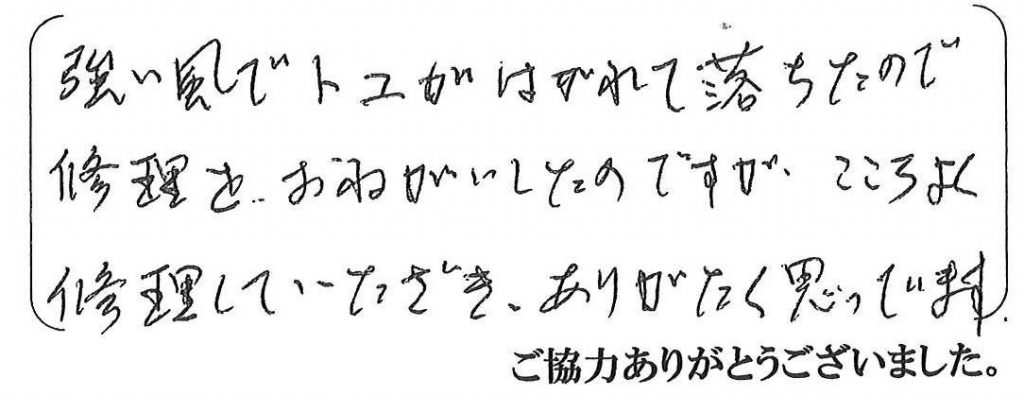 強い風でトユがはがれて落ちたので
修理を、おねがいしたのですが、こころよく
修理していただき、ありがたく思っています.
ご協力ありがとうございました。